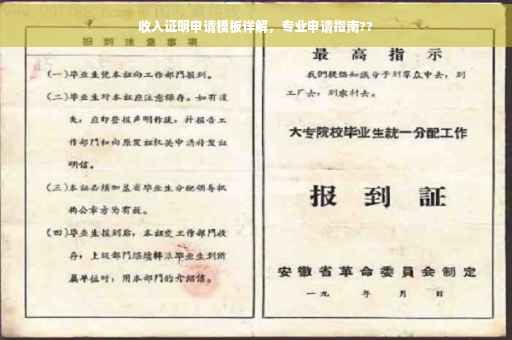 收入证明申请模板详解，专业申请指南??
报到注意事项
(一)毕业生凭本证向工作部门报到。
(二)毕业生对本证应注意保存。如有遗
失，应即登报声明作废，并报告工
作部门和向原发证机关申请补发证
明信。
(三)本证必须加盖省毕业生分配领导机
构公章方为有效。
(四)毕业生报到后，本证交工作部门收
存；上级部门
属单位时，用本部门的介绍信。
最高指示
我们提倡知识分子到群众中去，到
工厂去，到农村去。
大专院校毕业生统一分配工作
报到証
安徽省革命委員会制定
一九 年 月 日